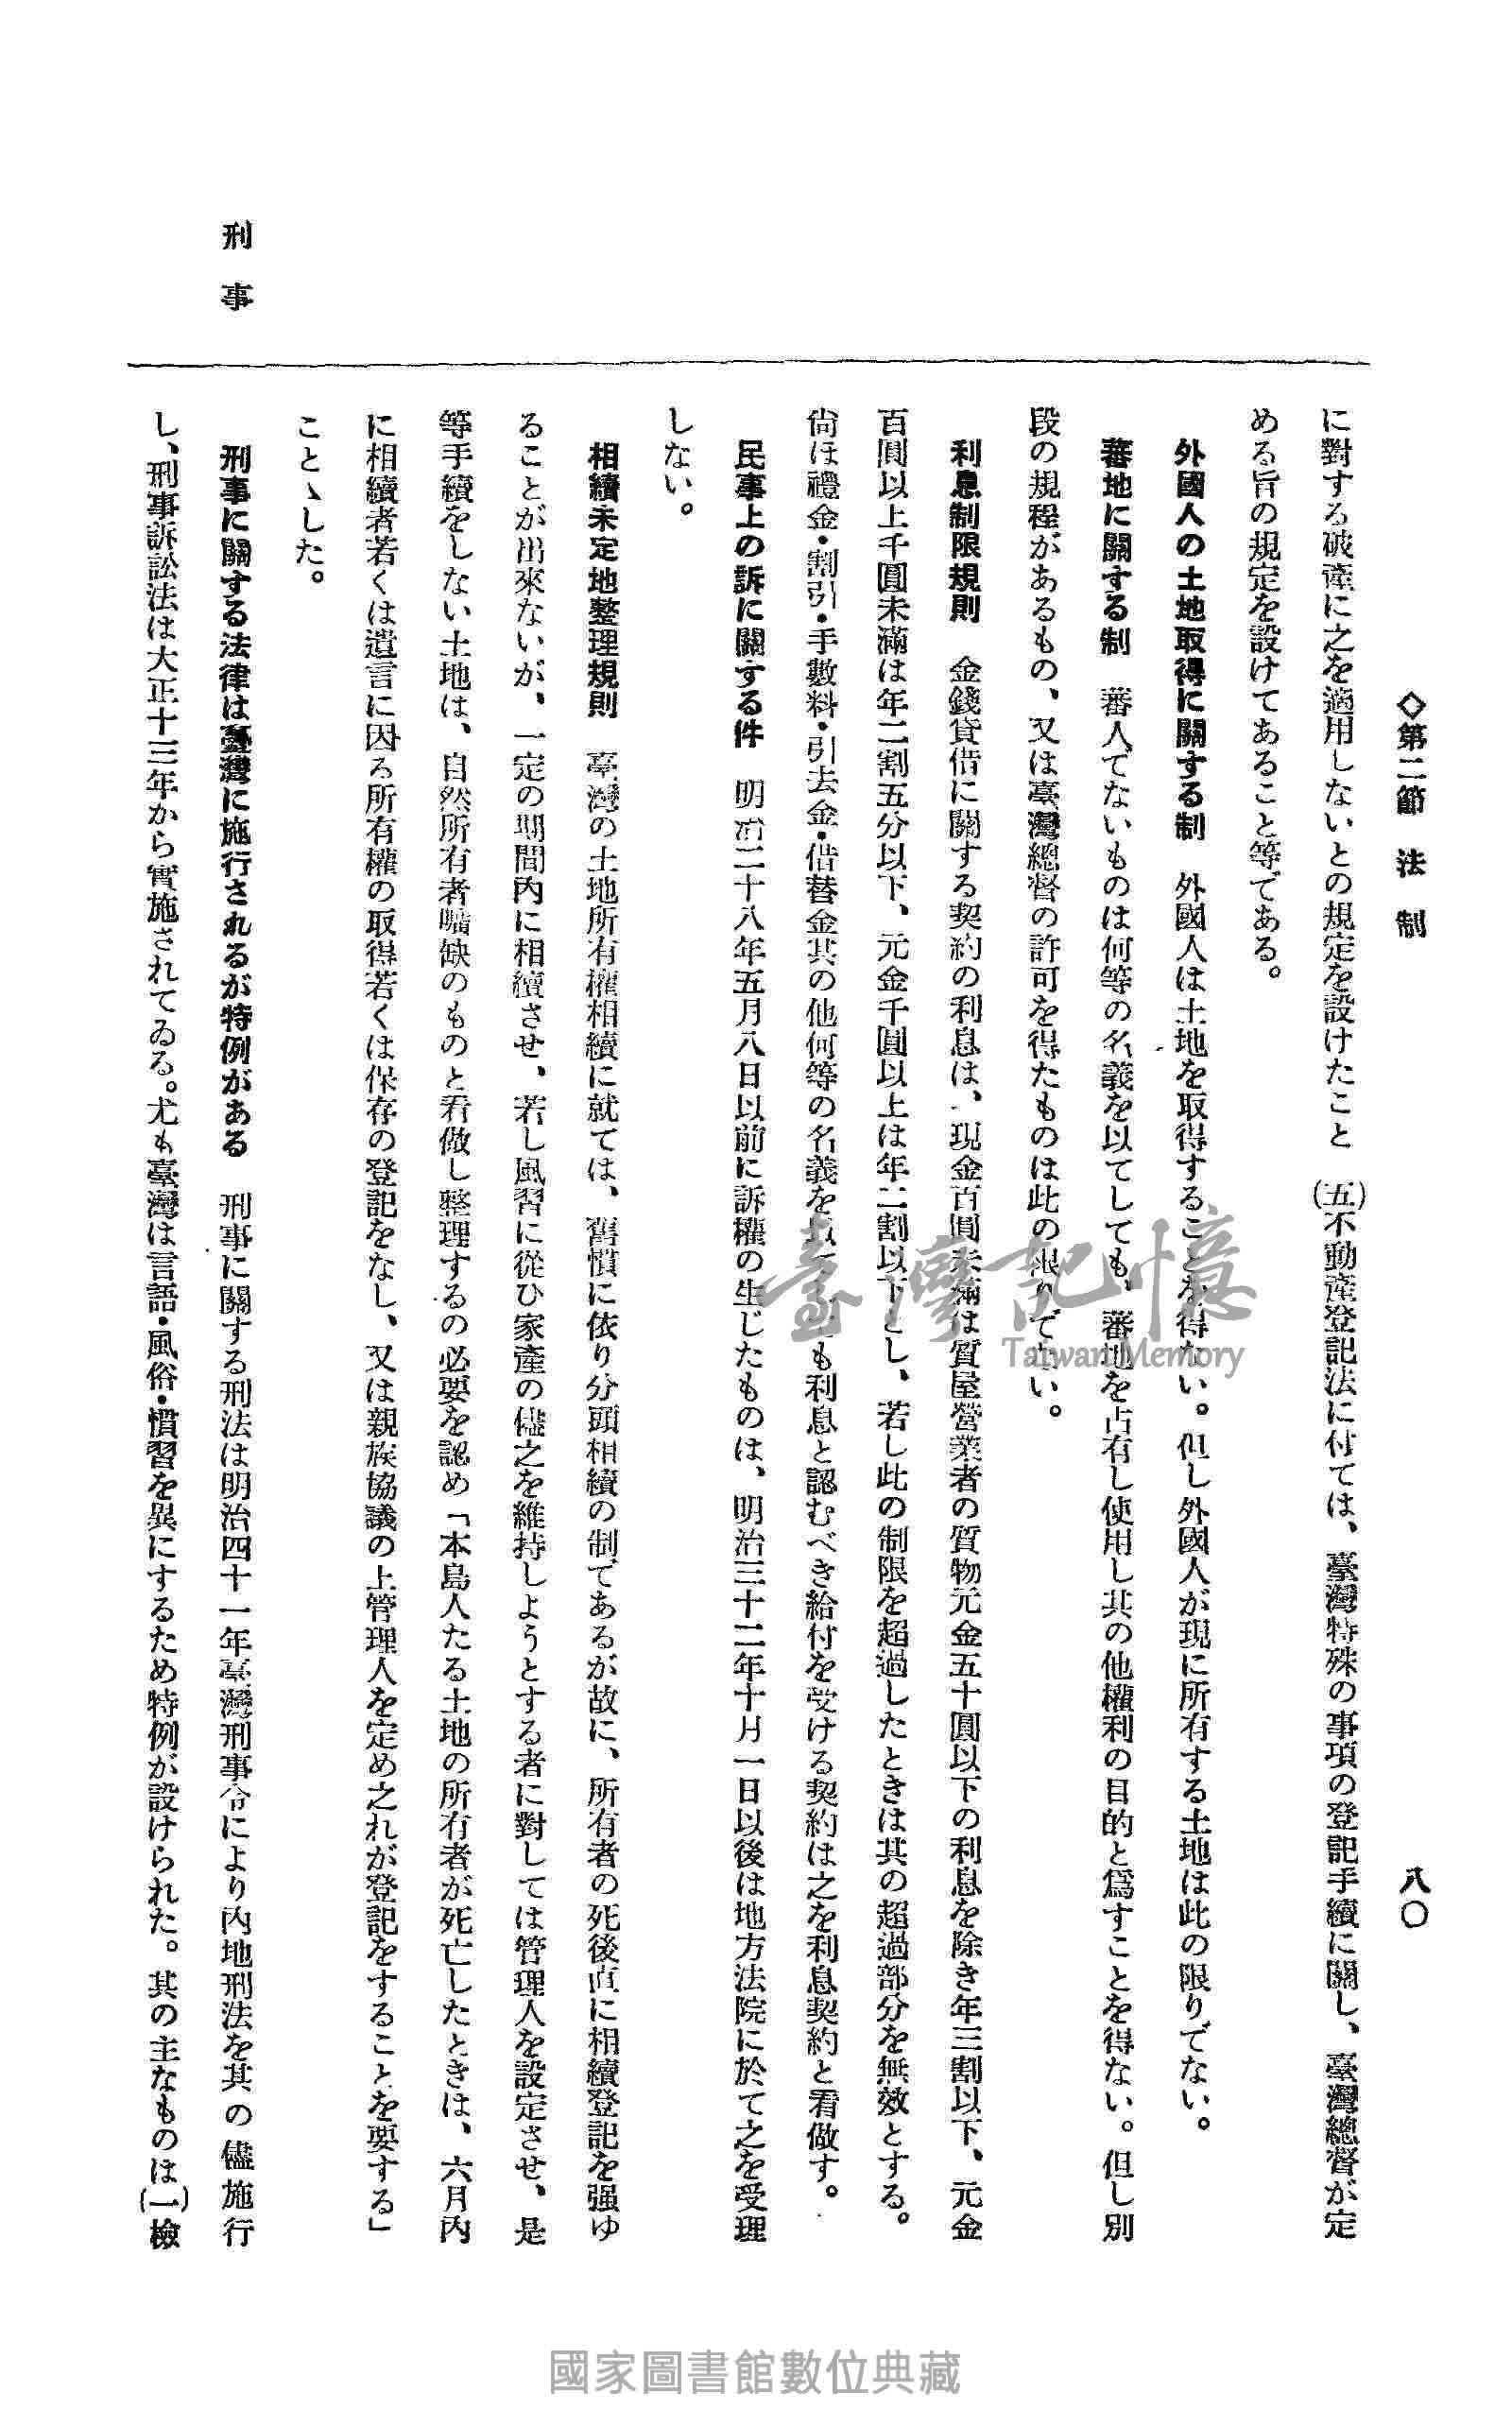 ◇第二節　法　制
八〇
に對する破產に之を適用しないとの規定を設けたこと　(五)不動產登記法に付ては、臺灣特殊の事項の登記手續に關し、臺灣總督が定
める旨の規定を設けてあること等である。
外國人の土地取得に關する制　外國人は土地を取得することを得ない。但し外國人が現に所有する土地は此の限りでない。
蕃地に關する制　蕃人でないものは何等の名義を以てしても、蕃地を占有し使用し其の他權利の目的と爲すことを得ない。但し別
段の規程があるもの、又は臺灣總督の許可を得たものは此の限りでない。
利息制限規則　金錢貸借に關する契約の利息は、現金百圓未滿は質屋營業者の質物元金五十圓以下の利息を除き年三割以下、元金
百圓以上千圓未滿は年二割五分以下、元金千圓以上は年二割以下とし、若し此の制限を超過したときは其の超過部分を無效とする。
尙ほ禮金・割引・手數料・引去金・借替金其の他何等の名義を以てするも利息と認むべき給付を受ける契約は之を利息契約と看做す。
民事上の訴に關する件　明治二十八年五月八日以前に訴權の生じたものは、明治三十二年十月一日以後は地方法院に於て之を受理
しない。
相續未定地整理規則　臺灣の土地所有權相續に就ては、舊慣に依り分頭相續の制であるが故に、所有者の死後直に相續登記を强ゆ
ることが出來ないが、一定の期間內に相續させ、若し風習に從ひ家產の儘之を維持しようとする者に對しては管理人を設定させ、是
等手續をしない土地は、自然所有者曠缺のものと看做し整理するの必要を認め「本島人たる土地の所有者が死亡したときは、六月內
に相續者若くは遺言に因る所有權の取得若くは保存の登記をなし、又は親族協議の上管理人を定め之れが登記をすることを要する」
ことゝした。
刑　事
刑事に關する法律は臺灣に施行されるが特例がある　刑事に關する刑法は明治四十一年臺灣刑事令により內地刑法を其の儘施行
し、刑事訴訟法は大正十三年から實施されてゐる。尤も臺灣は言語・風俗・慣習を異にするため特例が設けられた。其の主なものは(一)檢
臺灣記憶
Taiwan Memory
國家圖書館數位典藏